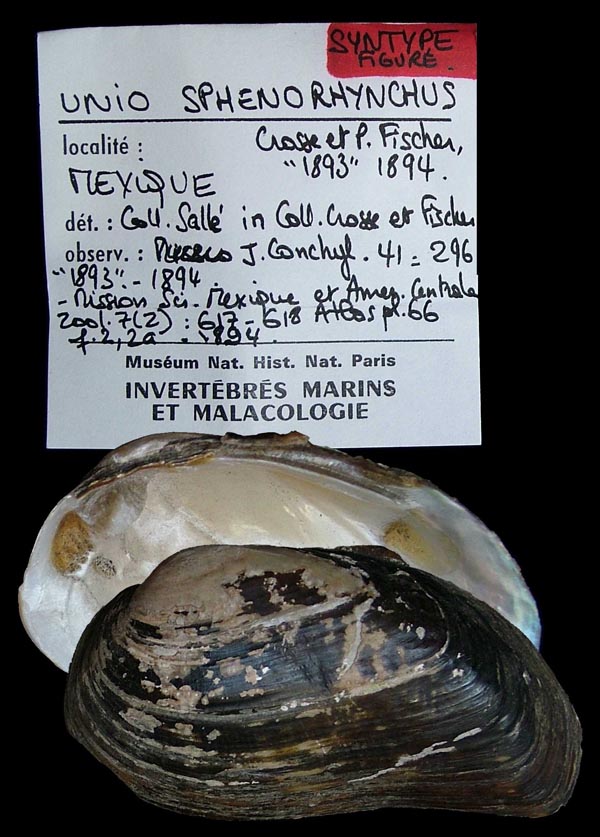 SYNTYPE
FIGURÉ.
UNIO SPHENORHYNCHUS
localité : Crosse et P. Fischer,
"1893" 1894.
MEXIQUE
dét. : Coll. Sallé in Coll. Crosse et Fischer
observ. : J. Conchyl. 41 : 296
"1893" - 1894.
- Mission Sci. Mexique et Amer. Centrale
Zool. 7(2) : 617-618 Atlas pl. 66
f. 2, 2a - 1894.
Muséum Nat. Hist. Nat. Paris
INVERTÉBRÉS MARINS
ET MALACOLOGIE